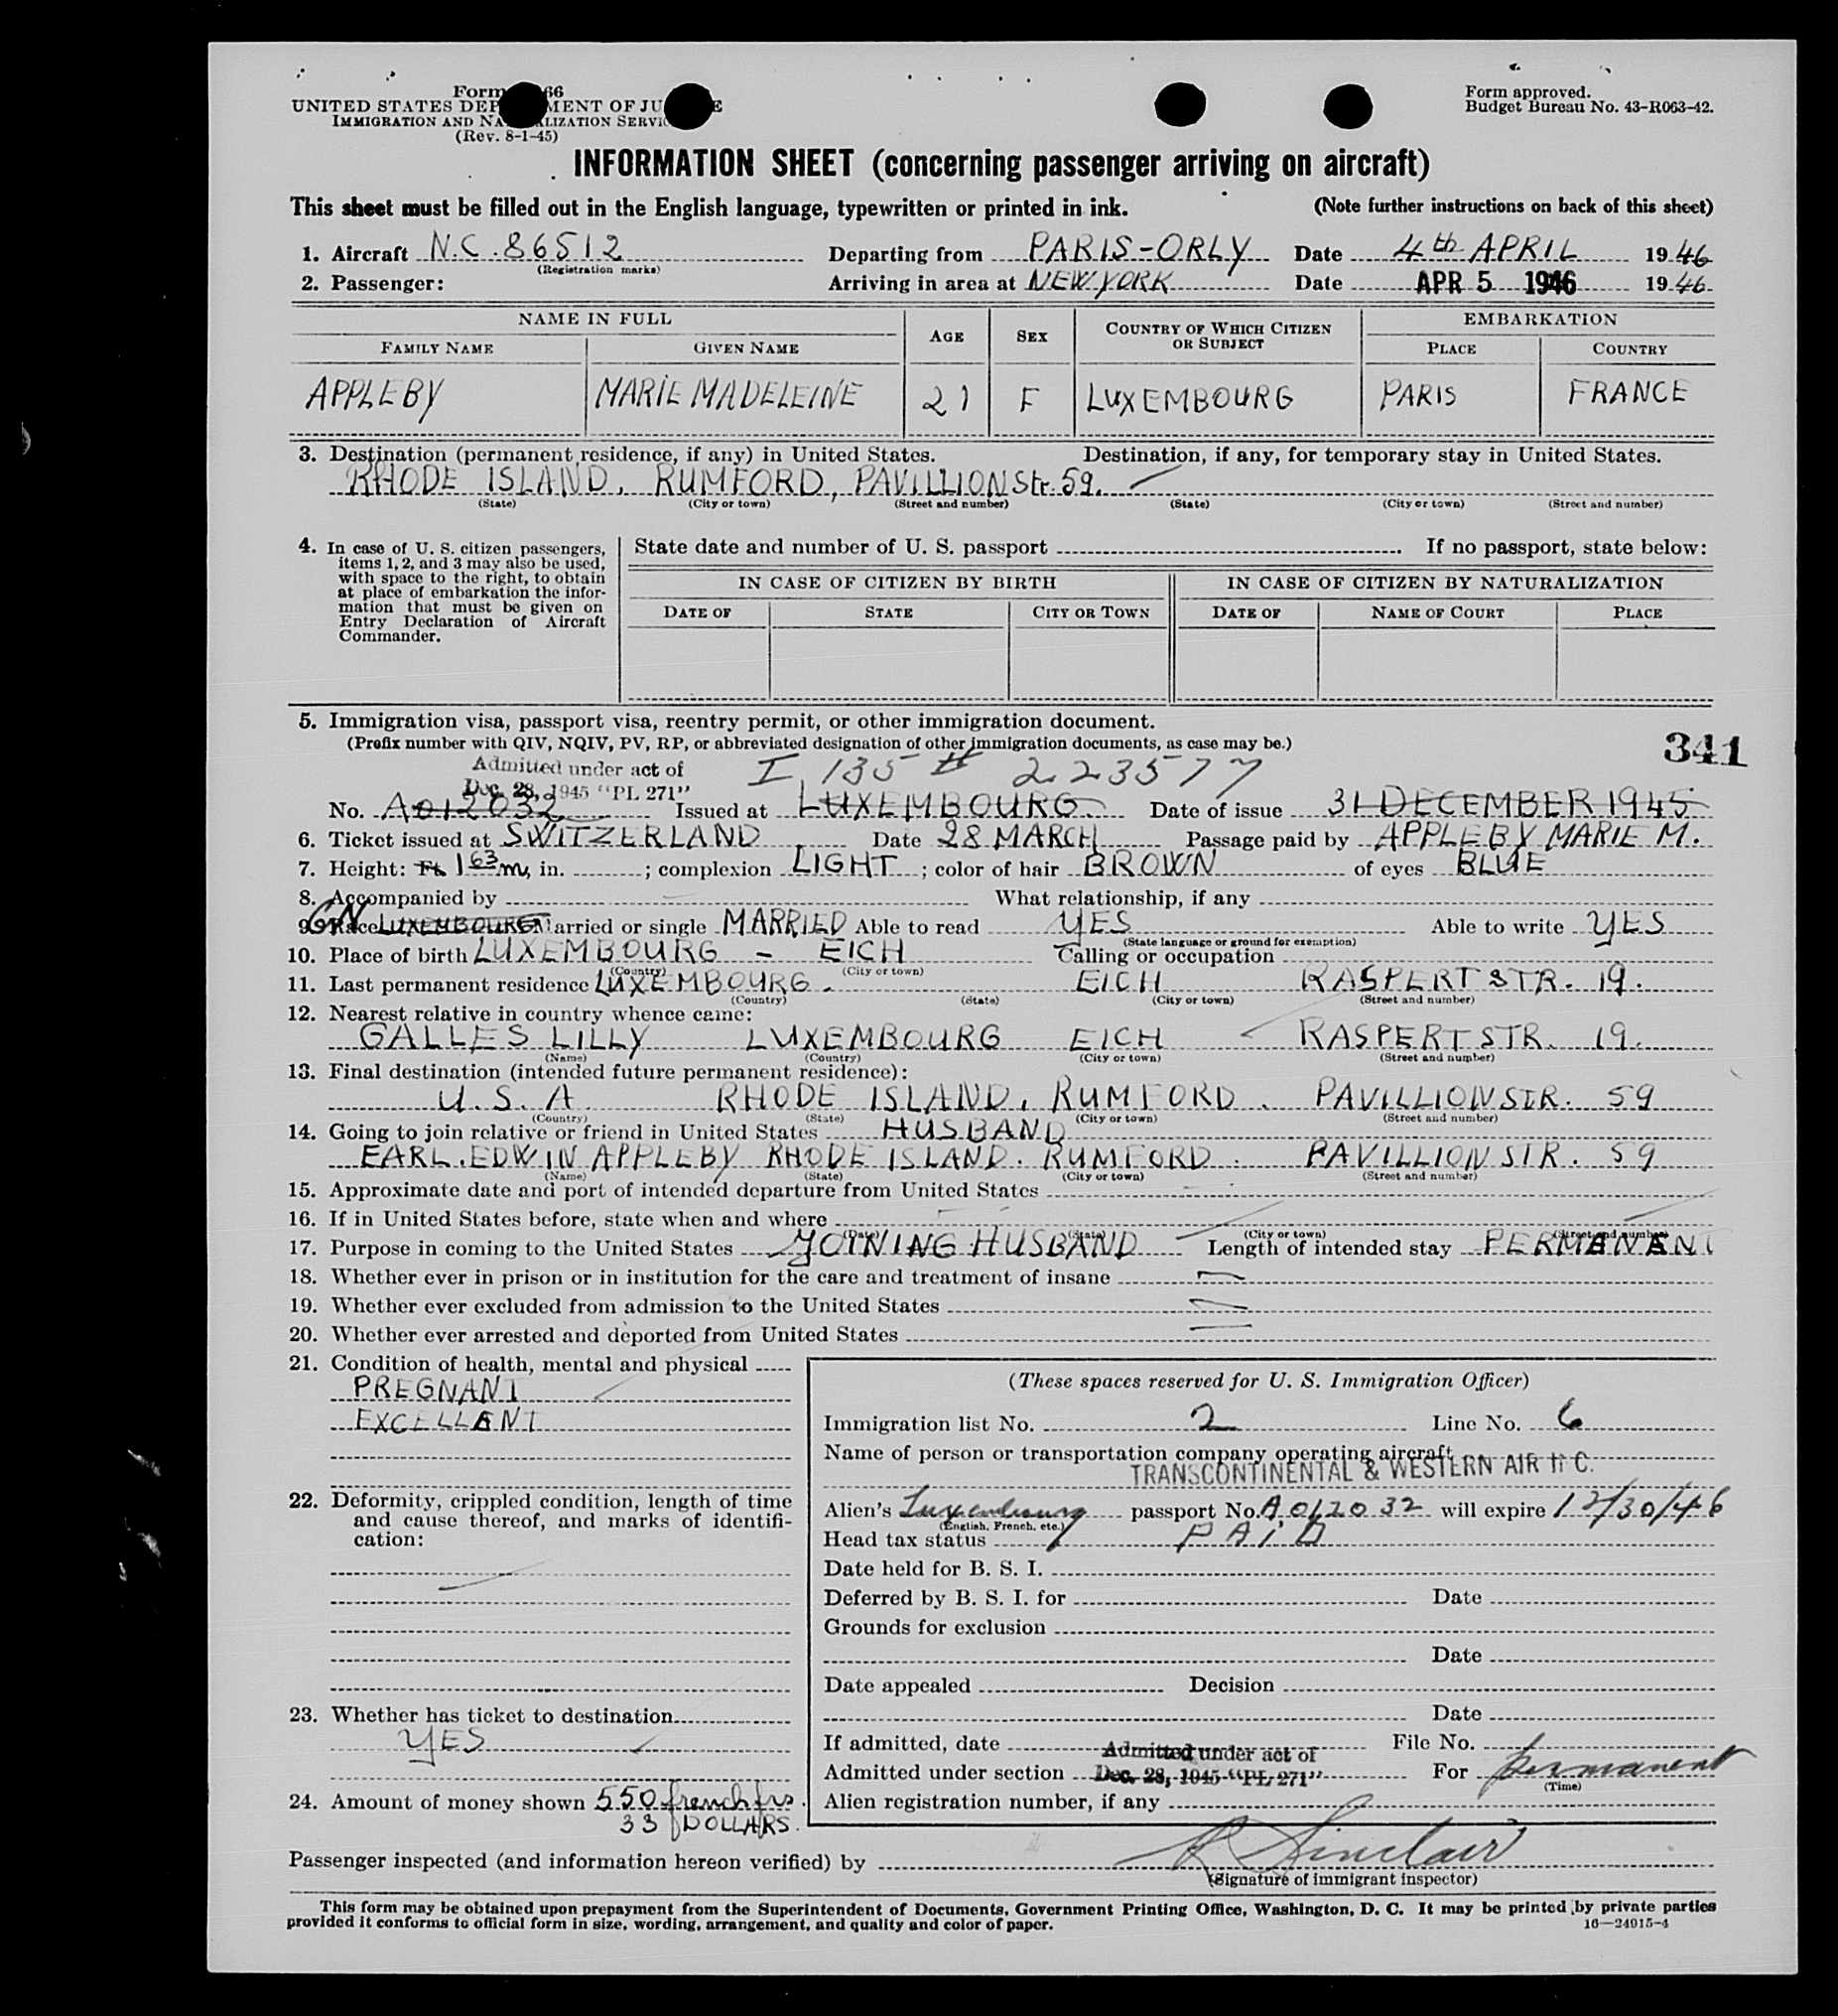 Form 66
UNITED STATES DEP MENT OF JU E
IMMIGRATION AND NA LIZATION SERVIC
(Rev. 8-1-45)
Form approved.
Budget Bureau No. 43-R063-42.
INFORMATION SHEET (concerning passenger arriving on aircraft)
This sheet must be filled out in the English language, typewritten or printed in ink. (Note further instructions on back of this sheet)
1. Aircraft N.C. 86512 Departing from PARIS-ORLY Date 4th APRIL 1946
(Registration marks)
2. Passenger: Arriving in area at NEW YORK Date APR 5 1946 1946
NAME IN FULL AGE SEX COUNTRY OF WHICH CITIZEN OR SUBJECT EMBARKATION
FAMILY NAME GIVEN NAME PLACE COUNTRY
APPLEBY MARIE MADELEINE 21 F LUXEMBOURG PARIS FRANCE
3. Destination (permanent residence, if any) in United States. Destination, if any, for temporary stay in United States.
RHODE ISLAND, RUMFORD, PAVILLION Str. 59.
(State) (City or town) (Street and number) (State) (City or town) (Street and number)
4. In case of U. S. citizen passengers, items 1, 2, and 3 may also be used, with space to the right, to obtain at place of embarkation the information that must be given on Entry Declaration of Aircraft Commander.
State date and number of U. S. passport . If no passport, state below:
IN CASE OF CITIZEN BY BIRTH IN CASE OF CITIZEN BY NATURALIZATION
DATE OF STATE CITY OR TOWN DATE OF NAME OF COURT PLACE
5. Immigration visa, passport visa, reentry permit, or other immigration document.
(Prefix number with QIV, NQIV, PV, RP, or abbreviated designation of other immigration documents, as case may be.)
341
Admitted under act of
Dec. 28, 1945 "PL 271"
I 135 # 223577
No. A012032 Issued at LUXEMBOURG. Date of issue 31 DECEMBER 1945
6. Ticket issued at SWITZERLAND Date 28 MARCH Passage paid by APPLEBY MARIE M.
7. Height: Ft. 1 63 m, in. ; complexion LIGHT ; color of hair BROWN of eyes BLUE
8. Accompanied by What relationship, if any
9. Race LUXEMBOURG Married or single MARRIED Able to read YES Able to write YES
(State language or ground for exemption)
10. Place of birth LUXEMBOURG - EICH Calling or occupation
(Country) (City or town)
11. Last permanent residence LUXEMBOURG. EICH RASPERT STR. 19.
(Country) (State) (City or town) (Street and number)
12. Nearest relative in country whence came:
GALLES LILLY LUXEMBOURG EICH RASPERT STR. 19.
(Name) (Country) (City or town) (Street and number)
13. Final destination (intended future permanent residence):
U.S.A. RHODE ISLAND, RUMFORD. PAVILLION STR. 59
(Country) (State) (City or town) (Street and number)
14. Going to join relative or friend in United States HUSBAND
EARL. EDWIN APPLEBY RHODE ISLAND. RUMFORD. PAVILLION STR. 59
(Name) (State) (City or town) (Street and number)
15. Approximate date and port of intended departure from United States
16. If in United States before, state when and where
(Date) (State) (City or town) (Street and number)
17. Purpose in coming to the United States YOINING HUSBAND Length of intended stay PERMANANT
18. Whether ever in prison or in institution for the care and treatment of insane
19. Whether ever excluded from admission to the United States
20. Whether ever arrested and deported from United States
21. Condition of health, mental and physical
PREGNANT
EXCELLENT
22. Deformity, crippled condition, length of time and cause thereof, and marks of identification:
23. Whether has ticket to destination
YES
24. Amount of money shown 550 french frs.
33 DOLLARS.
(These spaces reserved for U. S. Immigration Officer)
Immigration list No. 2 Line No. 6
Name of person or transportation company operating aircraft
TRANSCONTINENTAL & WESTERN AIR
Alien's Luxembourg passport No. A 012032 will expire 12/30/46
(English, French, etc.)
Head tax status PAID
Date held for B. S. I.
Deferred by B. S. I. for Date
Grounds for exclusion
Date
Date appealed Decision
Date
If admitted, date File No.
Admitted under section Admitted under act of Dec. 28, 1945 "PL 271" For permanent
(Time)
Alien registration number, if any
Passenger inspected (and information hereon verified) by R Sinclair
(Signature of immigrant inspector)
This form may be obtained upon prepayment from the Superintendent of Documents, Government Printing Office, Washington, D. C. It may be printed by private parties
provided it conforms to official form in size, wording, arrangement, and quality and color of paper. 16—24015-4